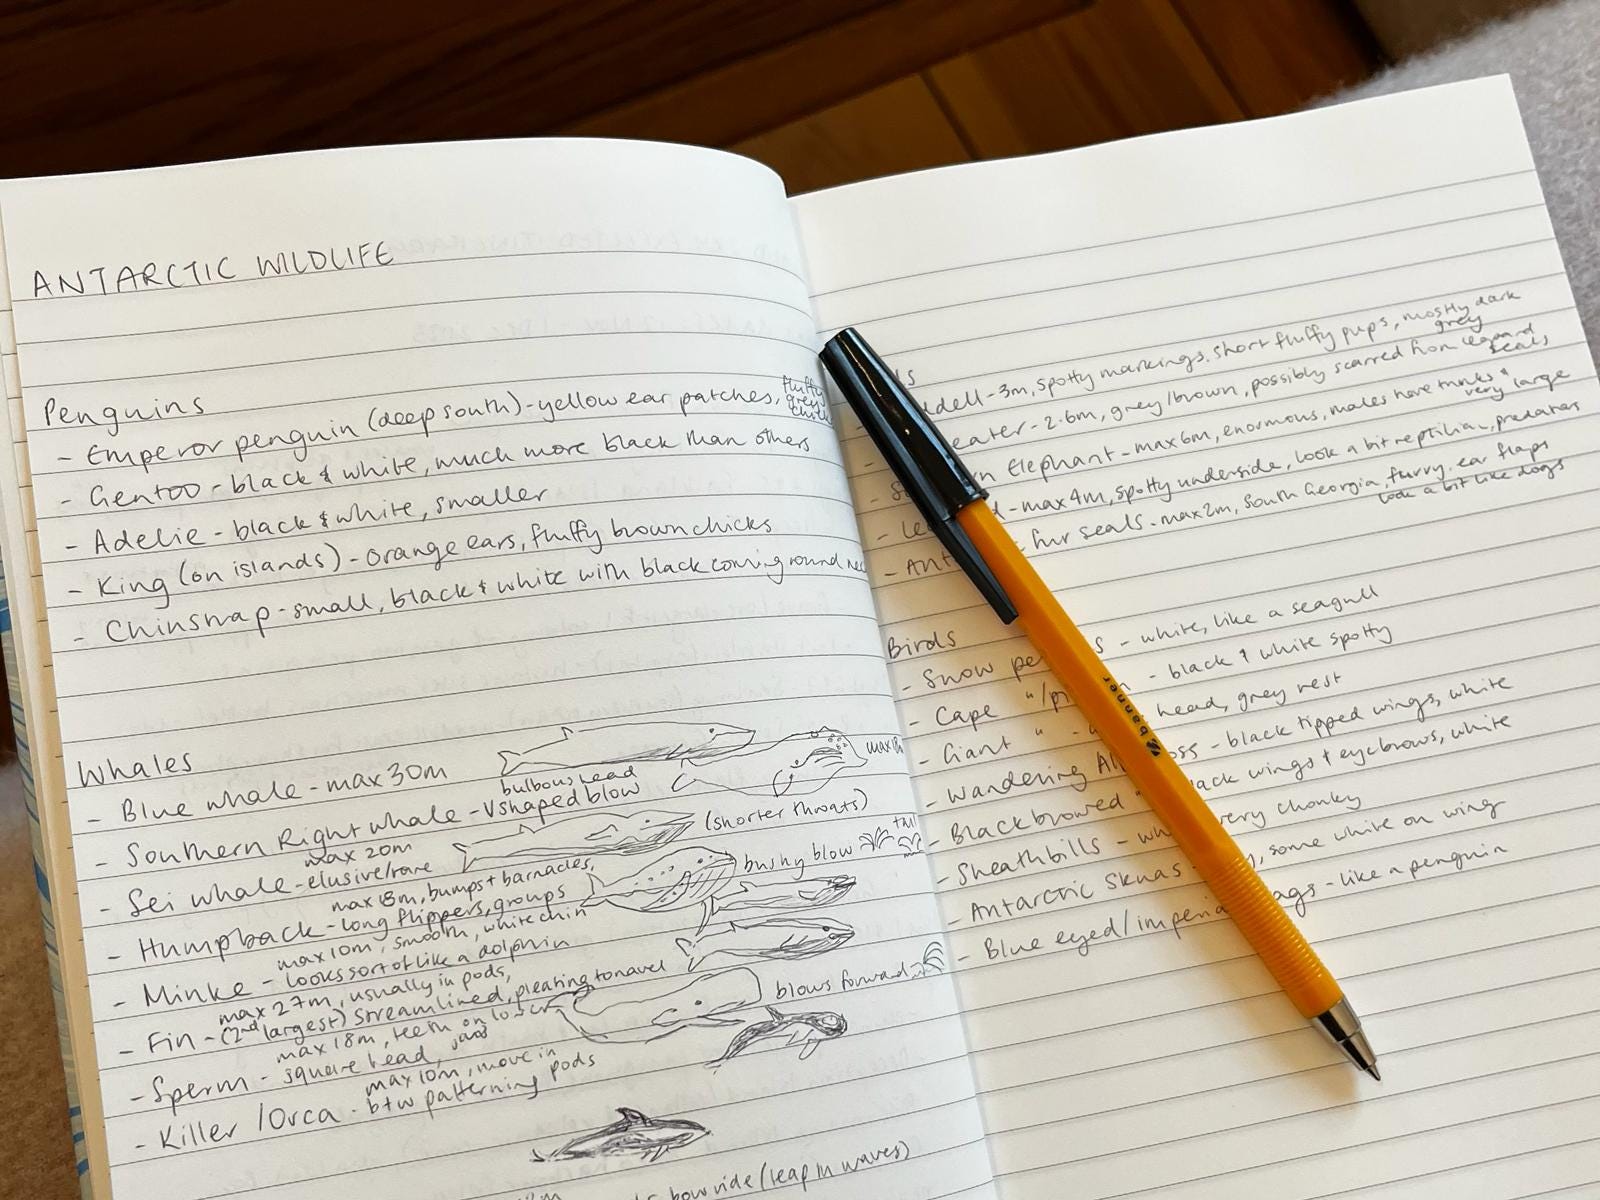 ANTARCTIC WILDLIFE
Penguins
- Emperor penguin (deep south) - yellow ear patches, fluffy grey chicks
- Gentoo - black & white, much more black than others
- Adelie - black & white, smaller
- King (on islands) - orange ears, fluffy brown chicks
- Chinstrap - small, black & white with black coming round nec
Whales
- Blue whale - max 30m
bulbous head
max 18m
- Southern Right whale - V shaped blow
max 20m
(shorter throats)
- Sei whale - elusive/rare
max 18m, bumps + barnacles,
bushy blow
tall
- Humpback - long flippers, groups
max 10m, smooth, white chin
- Minke - looks sort of like a dolphin
max 27m, usually in pods,
- Fin - (2nd largest) streamlined, pleating to navel
max 18m, teeth on lower
blows forward
- Sperm - square head, jaws
max 10m, move in
- Killer / Orca - b+w patterning pods
bowride (leap in waves)
ls
ddell - 3m, spotty markings. short fluffy pups, mostly dark grey
eater - 2.6m, grey/brown, possibly scarred from leopard seals
n Elephant - max 6m, enormous, males have trunks & very large
- Le d - max 4m, spotty underside, look a bit reptilian, predators
- Ant fur seals - max 2m, South Georgia, furry. ear flaps
look a bit like dogs
Birds
- Snow pe s - white, like a seagull
- Cape "/pi n - black & white spotty
- Giant " - head, grey rest
- Wandering Al oss - black tipped wings, white
- Black browed " lack wings + eyebrows, white
- Sheathbills - wh very chonky
- Antarctic Skuas - , some white on wing
- Blue eyed/imperia ags - like a penguin
banner